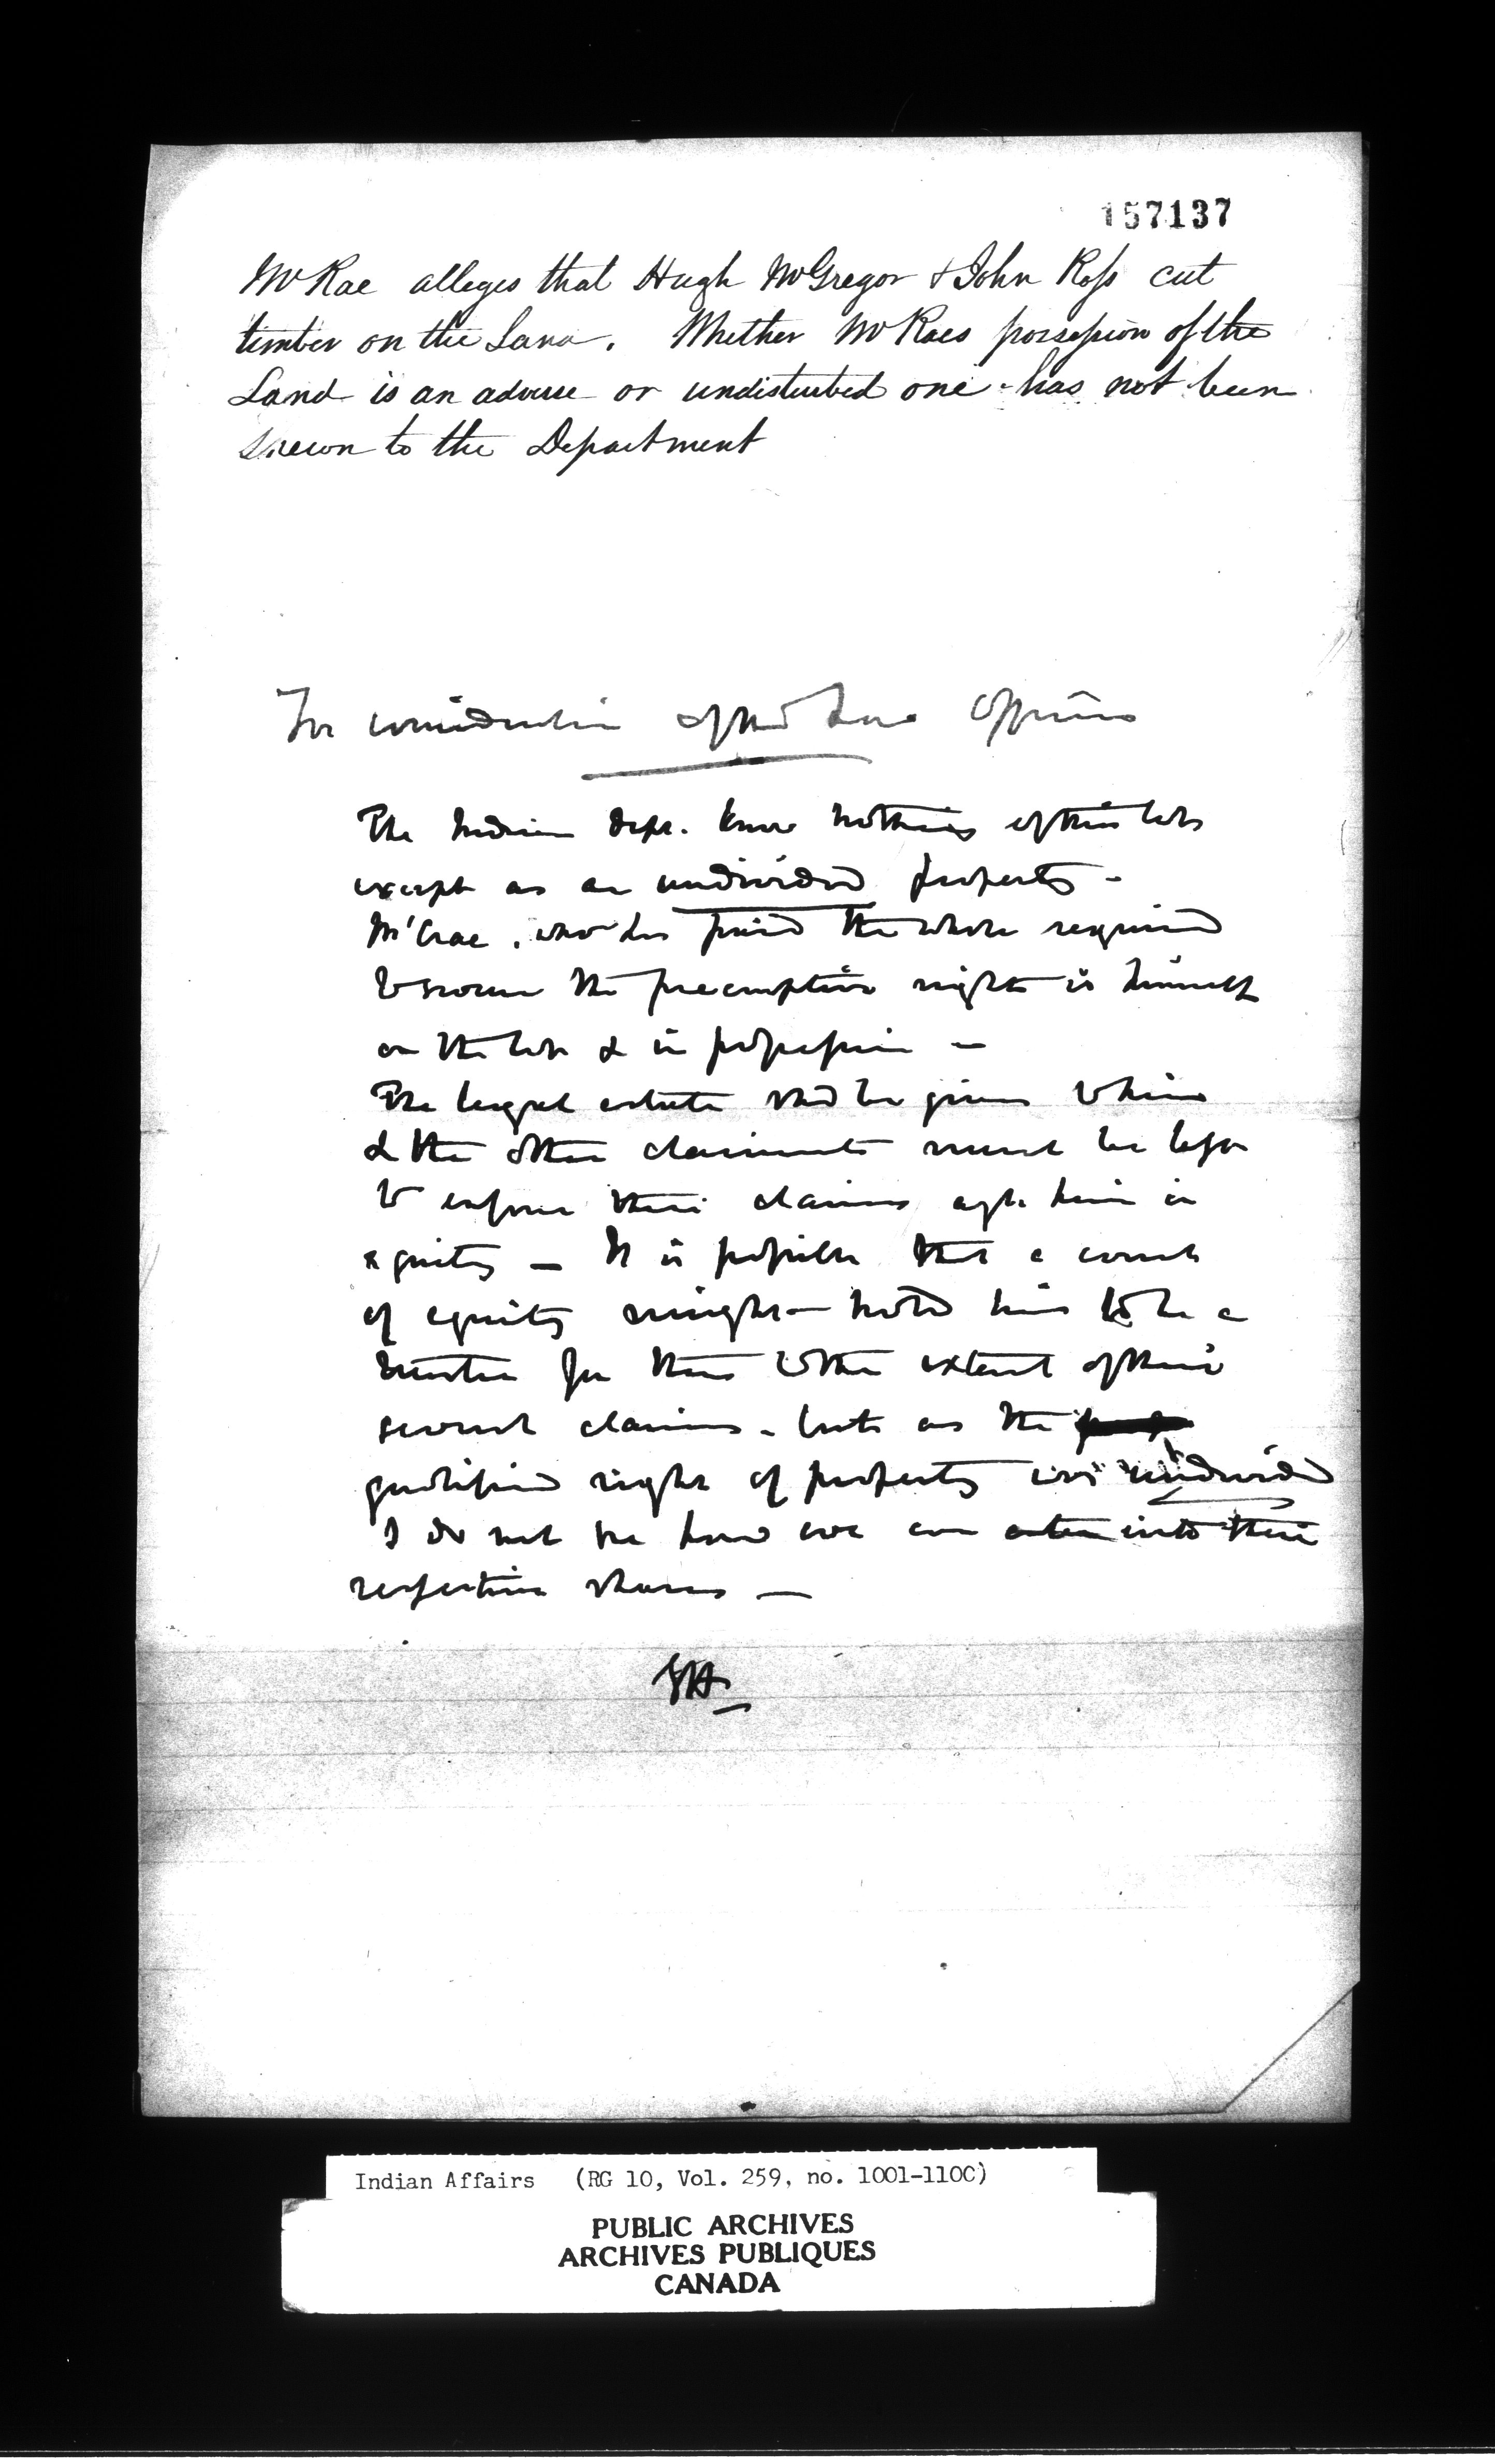 157137
McRae alleges that Hugh McGregor & John Ross cut
timber on the Land. Whether McRaes possession of the
Land is an adverse or undisturbed one has not been
shewn to the Department
For consideration of the Law Officers
The Indian Dept. know nothing of this lot
except as an undivided property -
McCrae, who has paid the whole required
to secure the preemptive right is himself
on the lot & in possession -
The legal estate shd be given to him
& the other claimants must be left
to enforce their claims agt him in
equity - It is possible that a court
of equity might hold him to be a
trustee for them to the extent of their
several claims - but as the
qualified right of property was undivided
I do not see how we can enter into their
respective shares -
Indian Affairs (RG 10, Vol. 259, no. 1001-1100)
PUBLIC ARCHIVES
ARCHIVES PUBLIQUES
CANADA